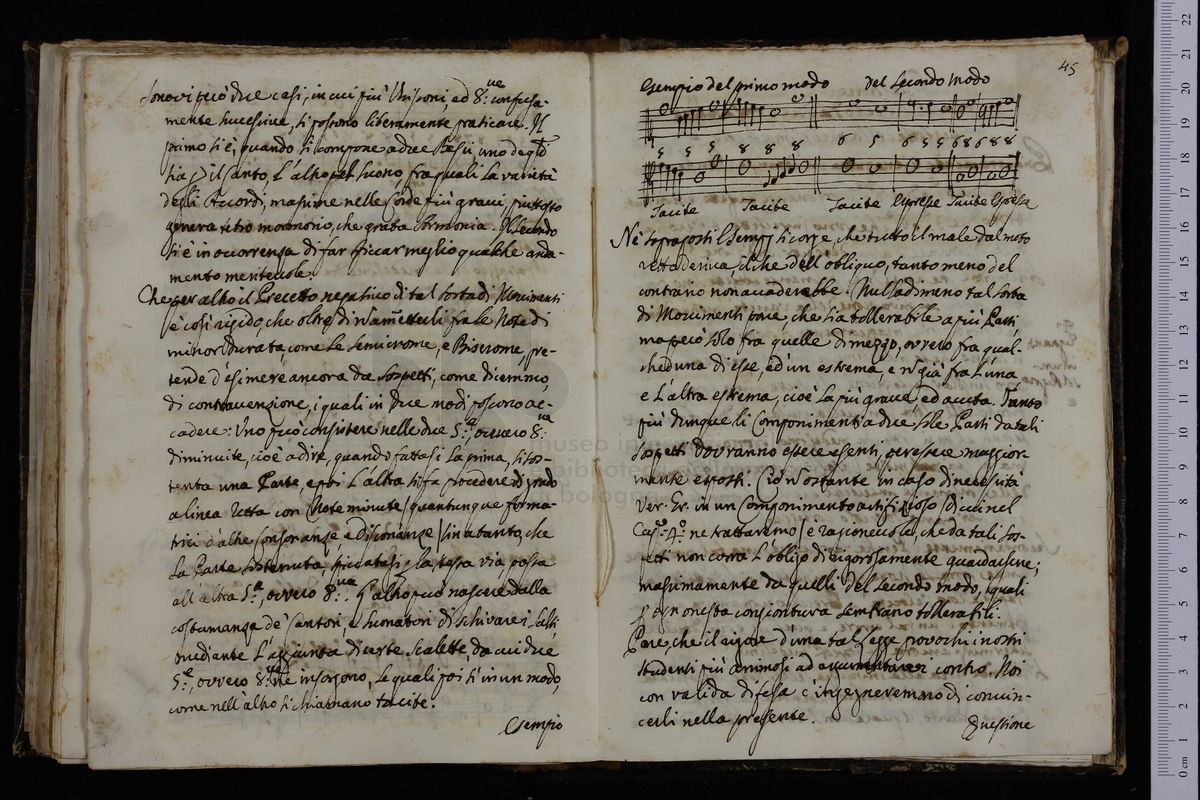 sonovi però due casi, in cui più Unisoni, ed 8.ve confusa-
mente successive, si possono liberamente praticare. Il
primo si è, quando si compone a due Bassi, uno de q.li
sia p il Canto, e l'altro pel suono, fra quali la varietà
degli Accordi, massime nelle Corde più gravi, piuttosto
genera tetro mormorio, che grata Armonia. Il Secondo
si è in occorrenza di far spiccar meglio qualche anda-
mento meritevole.
Che per altro il Precetto negativo di tal sorta di Movimenti
è così rigido, che oltre di non ammetterli fra le Note di
minor durata, come le Semicrome, e Biscrome, pre-
tende d'esimere ancora da sospetti, come dicemmo,
di contravenzione, i quali in due modi possono ac-
cadere: Uno può consistere nelle due 5.te, ovvero 8.ve
diminuite, cioè a dire, quando fattasi la prima, si sos-
tenta una Parte, e poi l'altra si fa procedere di grado
a linea retta con Note minute (quantunque forma-
trici d'altre Consonanze, e Dissonanze) in a tanto, che
la Parte sostenuta spiccatasi p la stessa via, passa
all'altra 5.ta, ovvero 8.va. L'altro può nascere dalla
costumanza de' Cantori, e Suonatori di schivare i salti,
mediante l'aggiunta di certe Scalette, da cui due
5.te, ovvero 8.ve ne insorgono, le quali poi sì in un modo,
come nell'altro si chiamano tacite.
Esempio
45
Esempio del primo modo del Secondo Modo
5 5 5 8 8 8 6 5 6 5 5 6 8 6 8 8
Tacite Tacite Tacite Espresse Tacite Espresse
Nè sopraposti Esempj si corge, che tutto il male dal moto
retto deriva, il che dell'obliquo, tanto meno del
contrario non accaderebbe. Nulladimeno tal sorta
di Movimenti pare, che sia tollerabile a più Parti
ma però solo fra quelle di mezzo, ovvero fra qual-
cheduna di esse, ed un estrema, e ñ già fra l'una
e l'altra estrema, cioè la più grave, ed acuta. Tanto
più dunque li Componimenti a due sole Parti da tali
sospetti dovranno essere esenti, per esser maggior-
mente esposti. Ciò ñ ostante in caso di necessità
Ver: Gr: in un Componimento artifizioso (di cui nel
Cap.o 4.o ne trattaremo) è ragionevole, che da tali sos-
petti non corra l'obligo di rigorosamente guardarsene;
massimamente da quelli del secondo modo, i quali
p ogn onesta congiontura sembrano tollerabili.
Pare, che il rigore d'una tal Legge provochi i nostri
studenti più animosi ad argumentare contro. Noi
con valida difesa c'ingegneremmo di convin-
cerli nella presente.
Questione